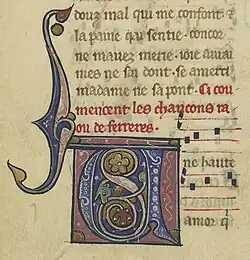 douz mal qui me confont ⁊
la paine qai sentie. concor
ne mauez merie. ioie aurai
mes ne sai dont. se amerci
madame ne sa pont. Si cou
mencent les chancons ra
ou de ferieres.
ne haute
amor q̃